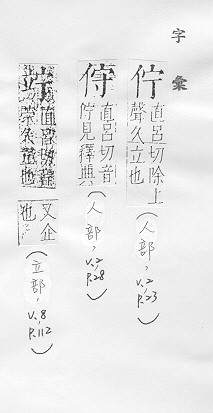 字彙
佇 直呂切除上
聲久立也
(人部, v.2 p.23)
直呂切音
佇見釋典
(人部, v.2 p.28)
直呂切
又企
也
(立部, v.8 p.112)